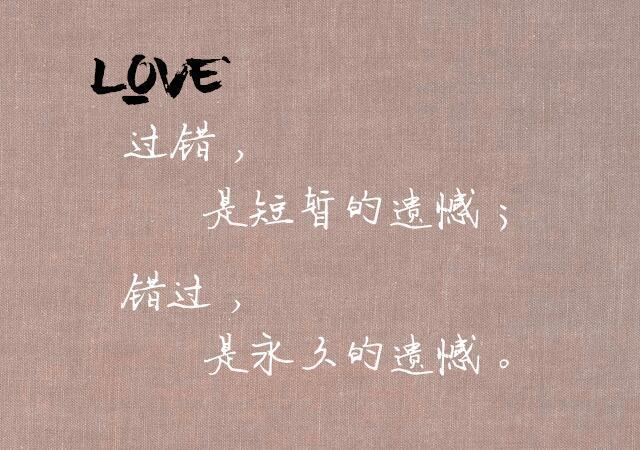 LOVE
过错，
是短暂的遗憾；
错过，
是永久的遗憾。